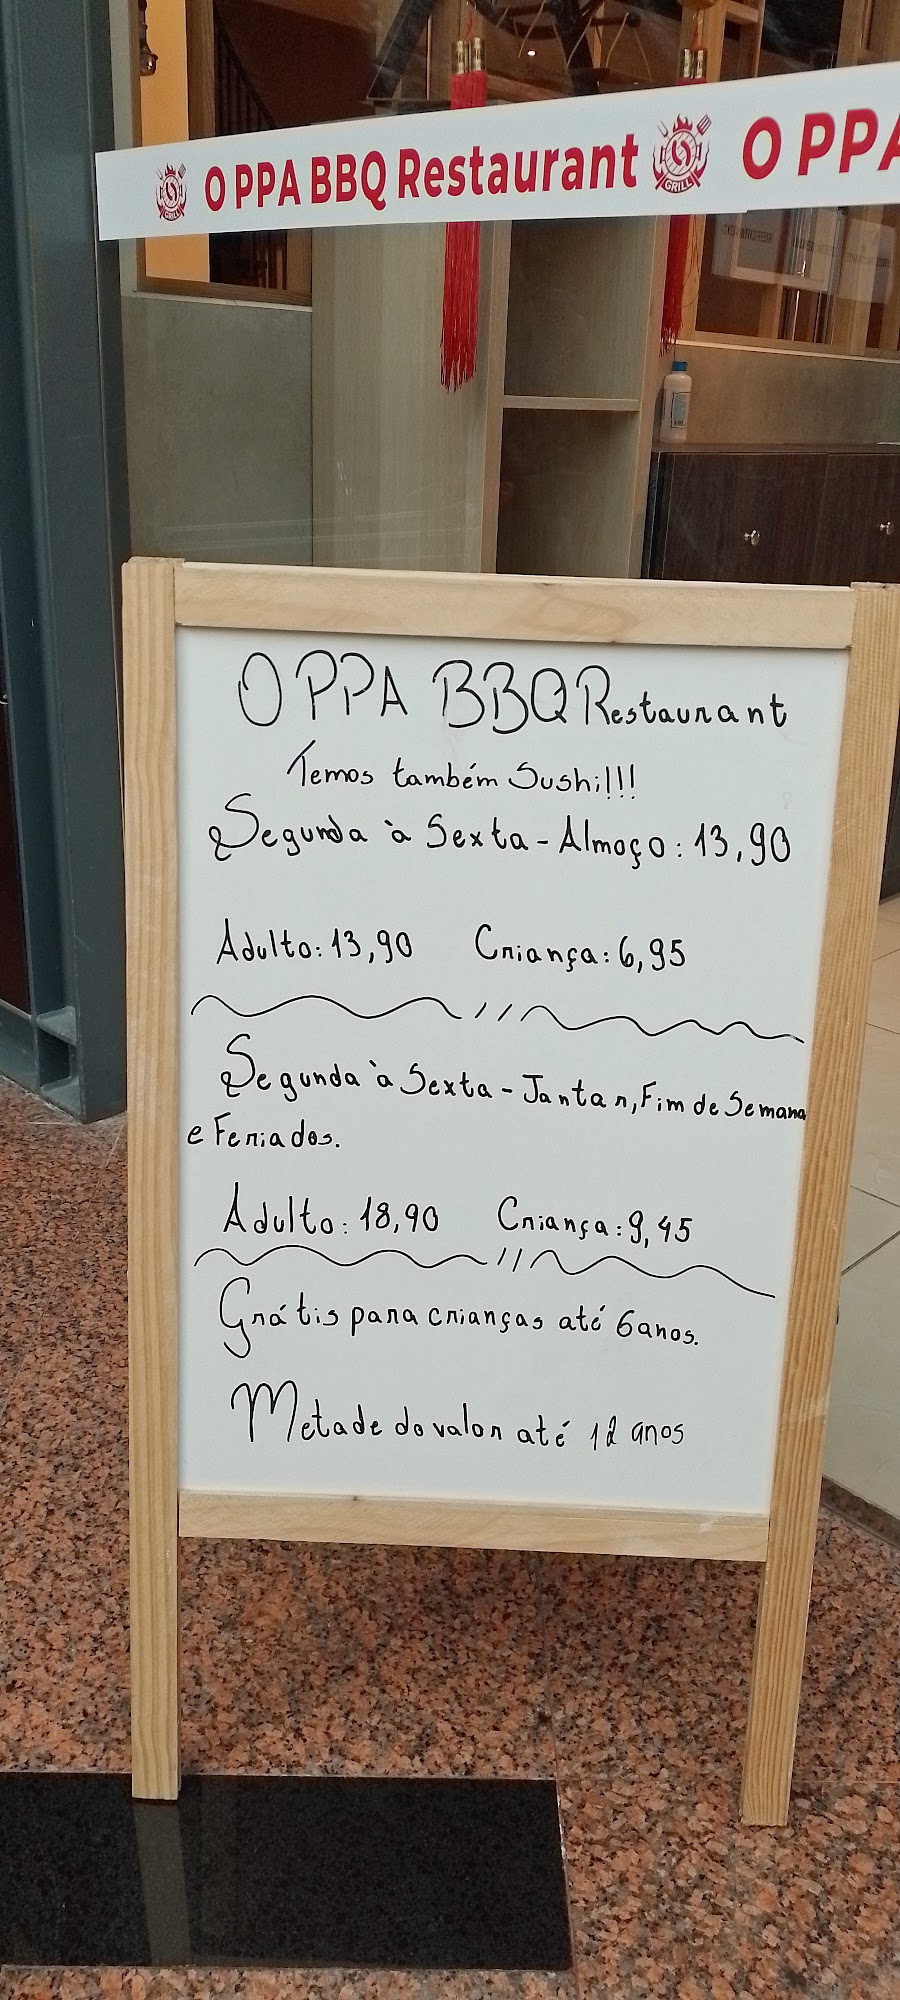 O PPA BBQ Restaurant
GRILL
GRILL
O PPA
O PPA BBQ Restaurant
Temos também Sushi!!!
Segunda à Sexta - Almoço: 13,90
Adulto: 13,90 Criança: 6,95
Segunda à Sexta - Jantar, Fim de Semana
e Feriados.
Adulto: 18,90 Criança: 9,45
Grátis para crianças até 6 anos.
Metade do valor até 12 anos